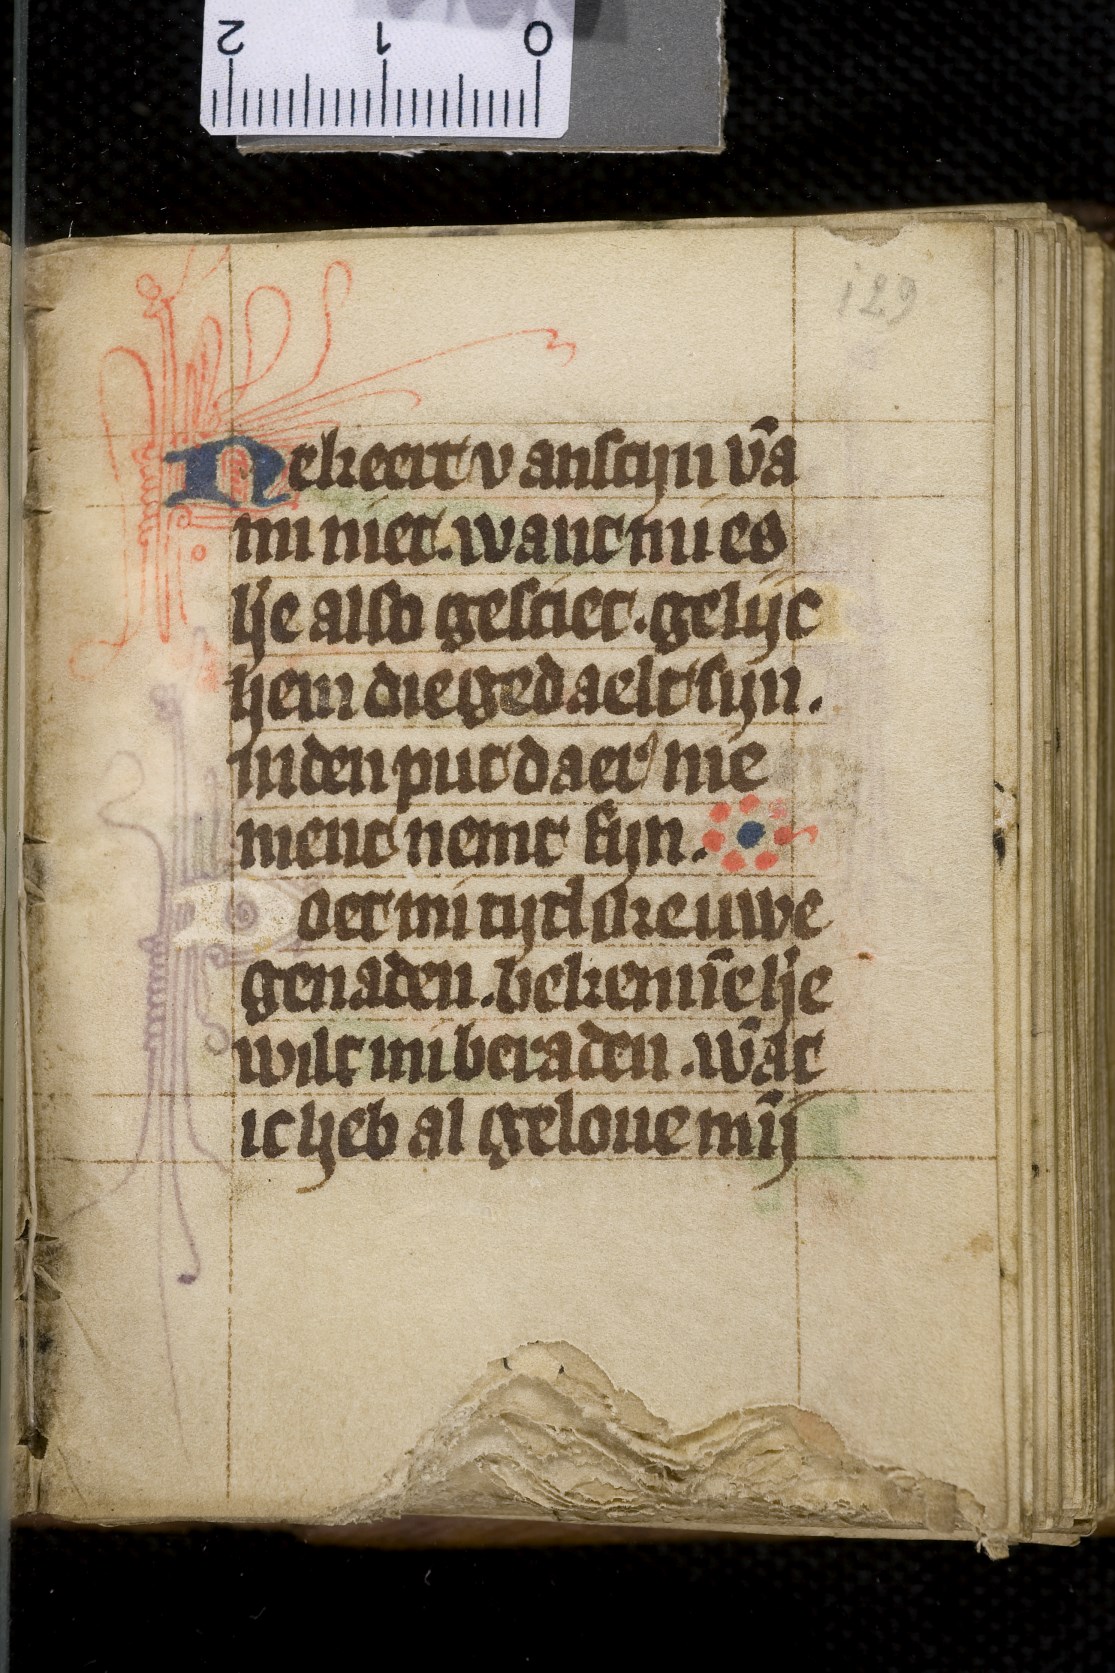 2 1 0
129
Nekeert v anscijn vā
mi niet. want mi es
he also gesciet. gelijc
hem die gedaelt sijn.
inden put daer nie
ment nemt fijn.
oet mi tijtl dre uwe
genaden. bekenn̄e he
wilt mi beraden. wāt
ic heb al geloue mīj